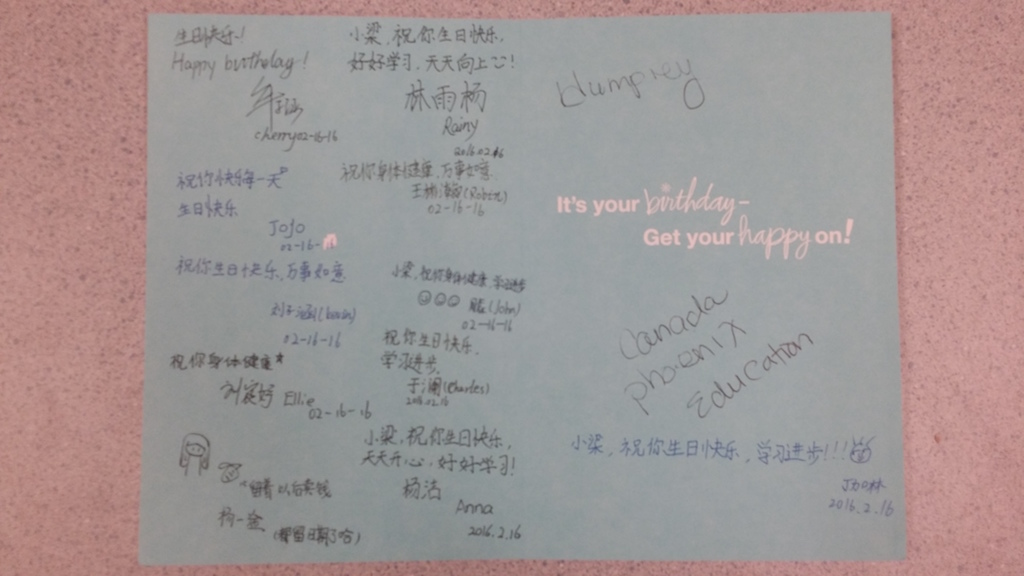 生日快乐!
Happy birthday!
cherry 02-16-16
小梁,祝你生日快乐.
好好学习,天天向上!
林雨杨
Rainy
2016.02.16
祝你快乐每一天
生日快乐
JoJo
02-16-
祝你身体健康,万事如意
(Robin)
02-16-16
祝你生日快乐,万事如意
刘子涵
02-16-16
小梁,祝你身体健康 学习进步
(John)
02-16-16
祝你身体健康
Ellie
02-16-16
祝你生日快乐.
学习进步.
于澜(Charles)
2016.02.16
小梁,祝你生日快乐,
天天开心,好好学习!
杨洁
Anna
2016.2.16
留着以后卖钱
杨一金
Humprey
It's your birthday–
Get your happy on!
Canada
phoenix
Education
小梁,祝你生日快乐,学习进步!!!
2016.2.16